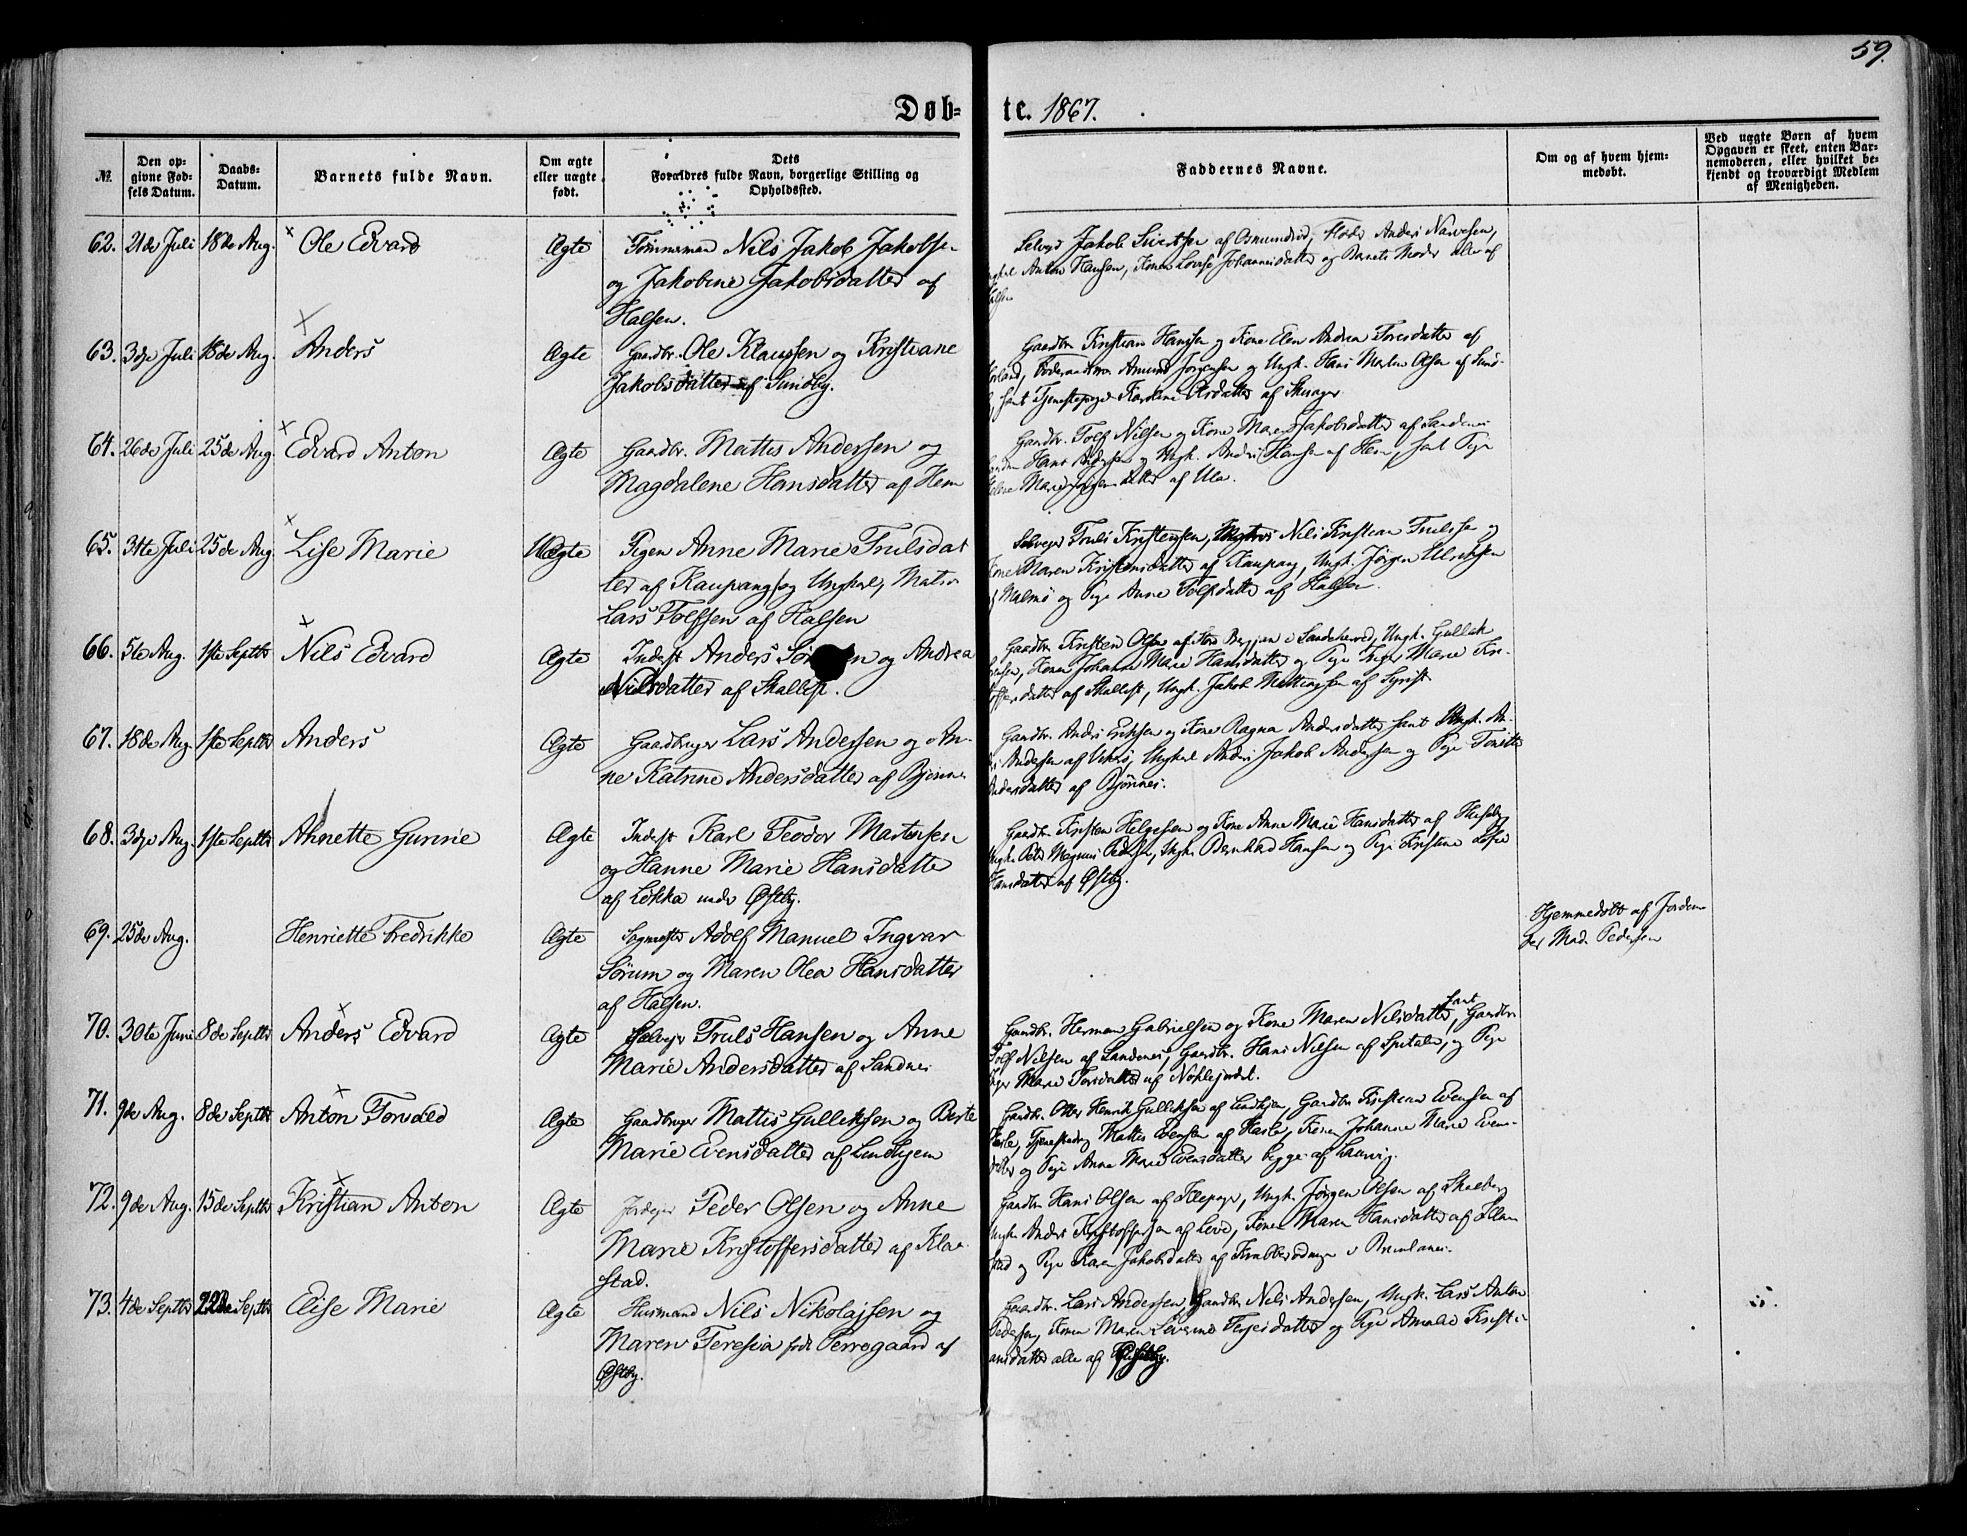 59.
Døb-
te. 1867.
№
Den op-
givne Fød-
sels Datum.
Daabs-
Datum.
Barnets fulde Navn.
Om ægte
eller uægte
født.
Dets
Forældres fulde Navn, borgerlige Stilling og
Opholdssted.
Faddernes Navne.
Om og af hvem hjem-
medøbt.
Ved uægte Børn af hvem
Opgaven er skeet, enten Bar-
nemoderen, eller hvilket be-
kjendt og troværdigt Medlem
af Menigheden.
62. 21de Juli 18de Aug. Ole Edvard Ægte Tømmermand Nils Jakob Jakobse-
og Jakobine Jakobsdatter af
Halsen.
Selveyr Jakob Sivertsen af Osmundrød, Anders Narvesen,
Anton Hansen, Konen Lovise Johannesdatter og Barnets Moder alle af
63. 3die Juli 18de Aug. Anders Ægte Gaardbr. Ole Klaussen og Kristiane
Jakobsdatter af Sundby.
Gaardbr. Kristian Hanssen og Kone Elen Andrea Toresdatter af
Amund Jørgensen og Ungk. Hans Martin Olsen af Sund-
samt Tjenestepige Karoline Olsdatter af
64. 26de Juli 25de Aug. Edvard Anton Ægte Gaardbr. Mattis Andersen og
Magdalene Hansdatter af Hem
Gaardbr. Tolf Nilsen og Kone Maren Jakobsdatter af Sandenes
Hans Andersen og Ungk. Anders Hansen af Hem, samt Pige
Marie Jørgensdatter af Ula.
65. 31te Juli 25de Aug. Lise Marie Uægte Pigen Anne Marie Trulsdat
ter af Kaupang og Ungkarl, Matro
Lars Tolfsen af Halsen
Selveyer Truls Kristensen, Nils Kristian Trulssen og
Kone Maren Kristensdatter af Kaupang, Ungk. Jørgen Ulriksen
af Malmø og Pige Anne Tolfsdatter af Halsen.
66. 5te Aug. 1ste Septbr Nils Edvard Ægte Inderst Anders og Andrea
Nilsdatter af Skallist.
Gaardbr Kristen Olsen af Store Bergan i Sandeherred, Ungk. Gullik
Konen Johanne Marie Hansdatter og Pige Inger Marie Kri-
stoffersdatter af Skallist, Ungk. Jakob af Syrist
67. 18de Aug. 1ste Septbr Anders Ægte Gaardbruger Lars Andersen og An-
ne Katrine Andersdatter af Bjønnes
Gaardbr. Anders Eriksen og Kone Ragna Andersdatter samt Ungk. An-
Andersen af Ungkarl Anders Jakob Andersen og Pige Tonette
Andersdatter af Bjønnes.
68. 3die Aug. 1ste Septbr Annette Gunnie Ægte Inderst Karl Teodor Martinsen
og Hanne Marie Hansdatter
af Løkka under Østby.
Gaardbr. Kristen Helgesen og Kone Anne Marie Hansdatter af Huseby
Ungk. Peter Magnus Pedersen, Ungk. Bernhard Hansen og Pige Kristine
Hansdatter af Østby.
69. 25de Aug. Henriette Fredrikke Ægte Sagmester Adolf Manuel Ingvar
Sørum og Maren Olea Hansdatter
af Halsen.
Hjemmedøbt af Jordemo
der Mad. Pedersen
70. 30te Juni 8de Septbr Anders Edvard Ægte Selveyer Truls Hansen og Anne
Marie Andersdatter af Sandnes
Gaardbr. Herman Gabrielsen og Kone Maren Nilsdatter, samt Gaardbr.
Tolf Nilsen af Sandenes, Gaardbr. Hans Nilsen af Spitalen, og Pige
Inger Marie Torsdatter af Nøklejordet.
71. 9de Aug. 8de Septbr Anton Torvald Ægte Gaardbruger Mattis Gulliksen og Berte
Marie Evensdatter af Lindhjem
Gaardbr. Otter Henrik Gulliksen af Lindhjem, Gaardbr Kristian Evensen af
Hasle, Tjenestedreng Mattis Evensen af Hasle, Konen Johanne Marie Evens-
datter og Pige Anne Marie Evensdatter begge af Laurvig.
72. 9de Aug. 15de Septbr Kristian Anton Ægte Jordejer Peder Olsen og Anne
Marie Kristoffersdatter af Klae-
stad.
Gaardbr Hans Olsen af Ungk. Jørgen Olsen af Skalberg
Ungk. Anders Kristoffersen af Løve, Konen Maren Hansdatter af Klæ-
stad og Pige Karen Jakobsdatter af Krabberødningen i Brunlanes.
73. 4de Septbr 22de Septbr Elise Marie Ægte Husmand Nils Nikolajsen og
Maren Teresia født Perregaard af
Østby.
Gaardbr. Lars Andersen, Gaardbr. Nils Andersen, Ungk. Lars Anton
Pedersen, Konen Maren Severine Terjesdatter og Pige Amalie Kristi-
ansdatter alle af Østby.